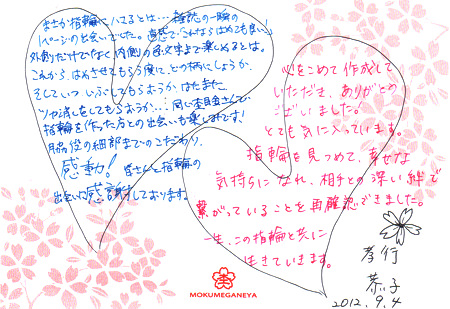 まさか指輪にハマるとは… 雑誌の一頁の
1ページの出会いでした。
外側だけでなく内側の色、文字まで楽しめるとは。
これから、はめさせてもらう度に、どの柄にしようか、
そして、いつ、いぶしてもらおうか、はたまた
ツヤ消しをしてもらおうか…同じ杢目さんで
指輪を作った方との出会いも楽しみです!
脇役の細部までのこだわり、
感動! 皆さんと指輪の
出会いに感謝しております。
心をこめて作成して
いただき、ありがとう
ございました!
とても気に入っています。
指輪を見つめて、幸せな
気持ちになれ、相手との深い絆で
繋がっていることを再確認できました。
一生、この指輪と共に
生きていきます。
孝行
恭子
2012.9.4
MOKUMEGANEYA